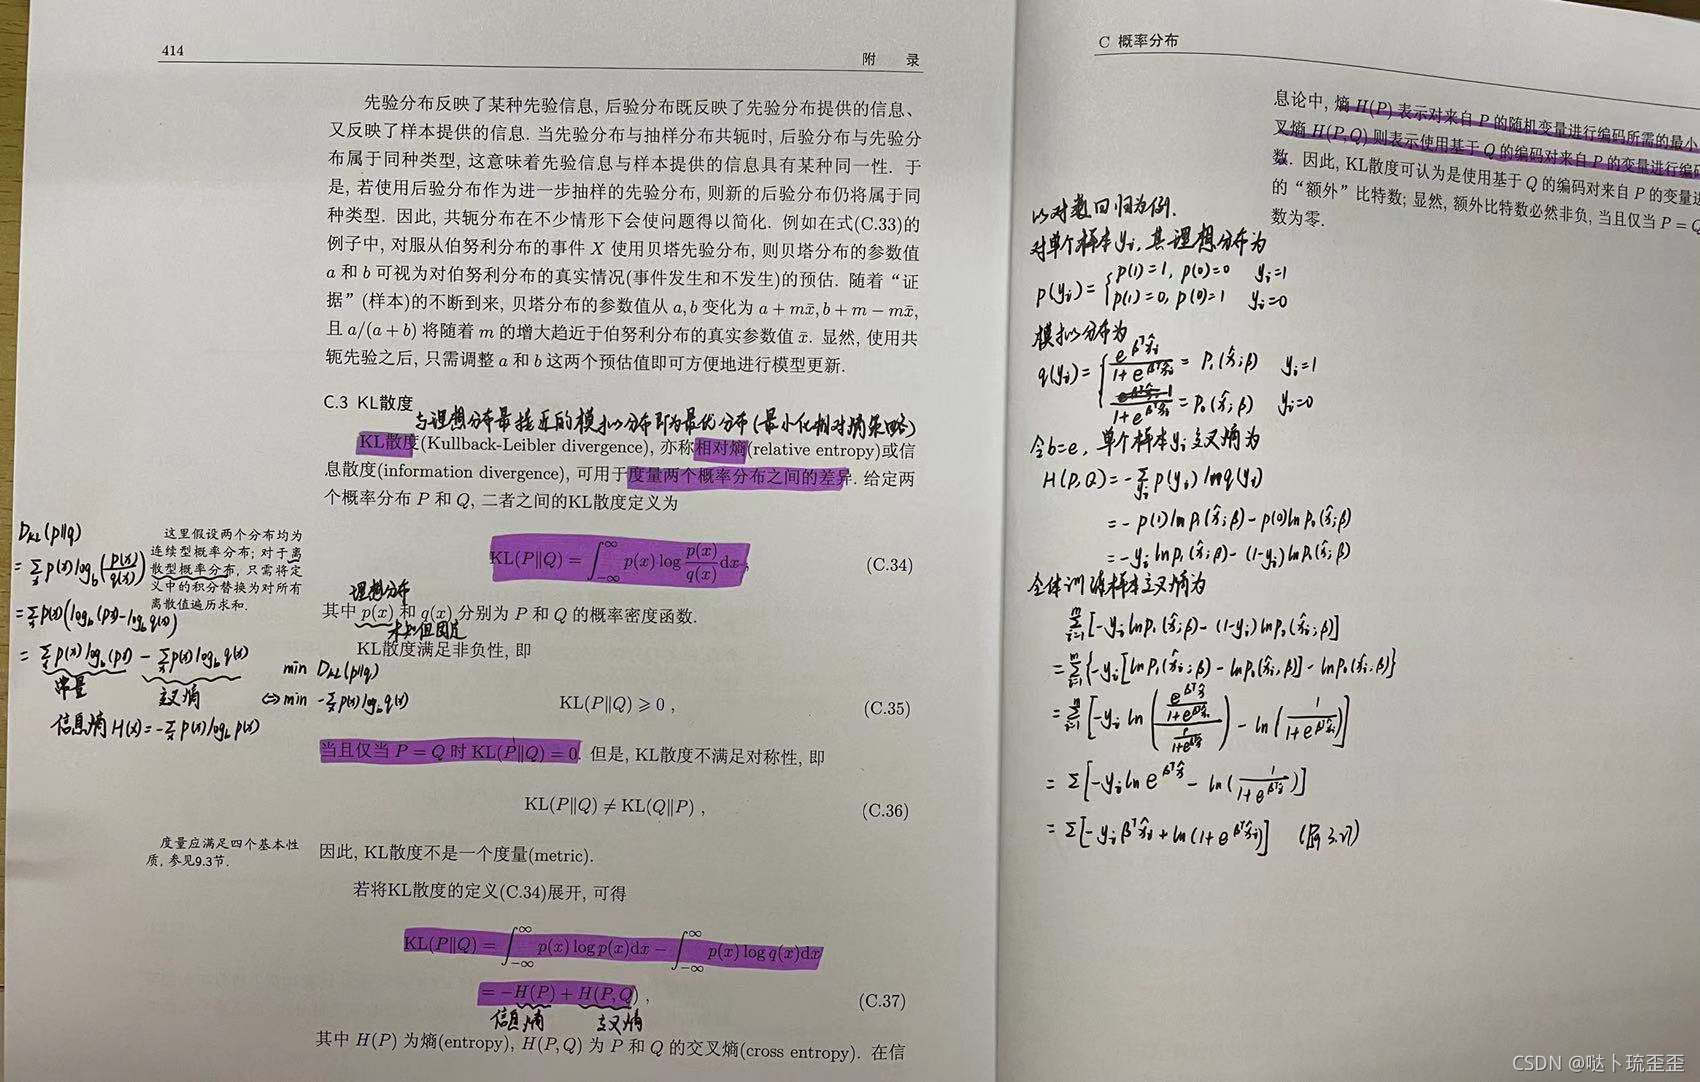 414
附 录
先验分布反映了某种先验信息, 后验分布既反映了先验分布提供的信息、
又反映了样本提供的信息. 当先验分布与抽样分布共轭时, 后验分布与先验分
布属于同种类型, 这意味着先验信息与样本提供的信息具有某种同一性. 于
是, 若使用后验分布作为进一步抽样的先验分布, 则新的后验分布仍将属于同
种类型. 因此, 共轭分布在不少情形下会使问题得以简化. 例如在式(C.33)的
例子中, 对服从伯努利分布的事件 X 使用贝塔先验分布, 则贝塔分布的参数值
a 和 b 可视为对伯努利分布的真实情况(事件发生和不发生)的预估. 随着“证
据”(样本)的不断到来, 贝塔分布的参数值从 a, b 变化为 a + mx̄, b + m − mx̄,
且 a/(a + b) 将随着 m 的增大趋近于伯努利分布的真实参数值 x̄. 显然, 使用共
轭先验之后, 只需调整 a 和 b 这两个预估值即可方便地进行模型更新.
C.3 KL散度
与理想分布最接近的模拟分布即为最优分布(最小化相对熵策略)
KL散度(Kullback-Leibler divergence), 亦称相对熵(relative entropy)或信
息散度(information divergence), 可用于度量两个概率分布之间的差异. 给定两
个概率分布 P 和 Q, 二者之间的KL散度定义为
KL(P‖Q) = ∫_{−∞}^{∞} p(x) log p(x)/q(x) dx , (C.34)
理想分布
其中 p(x) 和 q(x) 分别为 P 和 Q 的概率密度函数.
未知但固定
KL散度满足非负性, 即
KL(P‖Q) ⩾ 0 , (C.35)
当且仅当 P = Q 时 KL(P‖Q) = 0. 但是, KL散度不满足对称性, 即
KL(P‖Q) ≠ KL(Q‖P) , (C.36)
因此, KL散度不是一个度量(metric).
若将KL散度的定义(C.34)展开, 可得
KL(P‖Q) = ∫_{−∞}^{∞} p(x) log p(x)dx − ∫_{−∞}^{∞} p(x) log q(x)dx
= −H(P) + H(P, Q) , (C.37)
信息熵 交叉熵
其中 H(P) 为熵(entropy), H(P, Q) 为 P 和 Q 的交叉熵(cross entropy). 在信
这里假设两个分布均为
连续型概率分布; 对于离
散型概率分布, 只需将定
义中的积分替换为对所有
离散值遍历求和.
度量应满足四个基本性
质, 参见9.3节.
D_KL(p‖q)
= Σ_x p(x) log_b (p(x)/q(x))
= Σ_x p(x)(log_b p(x) − log_b q(x))
= Σ_x p(x) log_b p(x) − Σ_x p(x) log_b q(x)
常量 交叉熵
min D_KL(p‖q)
⇔ min −Σ_x p(x) log_b q(x)
信息熵 H(x) = −Σ_x p(x) log_b p(x)
C 概率分布
息论中, 熵 H(P) 表示对来自 P 的随机变量进行编码所需的最小
叉熵 H(P, Q) 则表示使用基于 Q 的编码对来自 P 的变量进行编码
数. 因此, KL散度可认为是使用基于 Q 的编码对来自 P 的变量进
的“额外”比特数; 显然, 额外比特数必然非负, 当且仅当 P = Q
数为零.
以对数回归为例.
对单个样本 y_i, 其理想分布为
p(y_i) = { p(1)=1, p(0)=0 y_i=1
p(1)=0, p(0)=1 y_i=0
模拟分布为
q(y_i) = { e^{β^T x̂_i}/(1+e^{β^T x̂_i}) = P_1(x̂; β) y_i=1
1/(1+e^{β^T x̂_i}) = P_0(x̂; β) y_i=0
令b=e, 单个样本 y_i 交叉熵为
H(P,Q) = −Σ_{y_i} p(y_i) ln q(y_i)
= −p(1) ln P_1(x̂; β) − p(0) ln P_0(x̂; β)
= −y_i ln P_1(x̂; β) − (1−y_i) ln P_0(x̂; β)
全体训练样本交叉熵为
Σ_{i=1}^m [−y_i ln P_1(x̂_i; β) − (1−y_i) ln P_0(x̂_i; β)]
= Σ_{i=1}^m {−y_i [ln P_1(x̂_i; β) − ln P_0(x̂_i; β)] − ln P_0(x̂_i; β)}
= Σ_{i=1}^m [−y_i ln ((e^{β^T x̂}/(1+e^{β^T x̂_i}))/(1/(1+e^{β^T x̂}))) − ln (1/(1+e^{β^T x̂_i}))]
= Σ [−y_i ln e^{β^T x̂} − ln (1/(1+e^{β^T x̂_i}))]
= Σ [−y_i β^T x̂_i + ln(1+e^{β^T x̂_i})] (同 3.27)
CSDN @哒卜琉歪歪